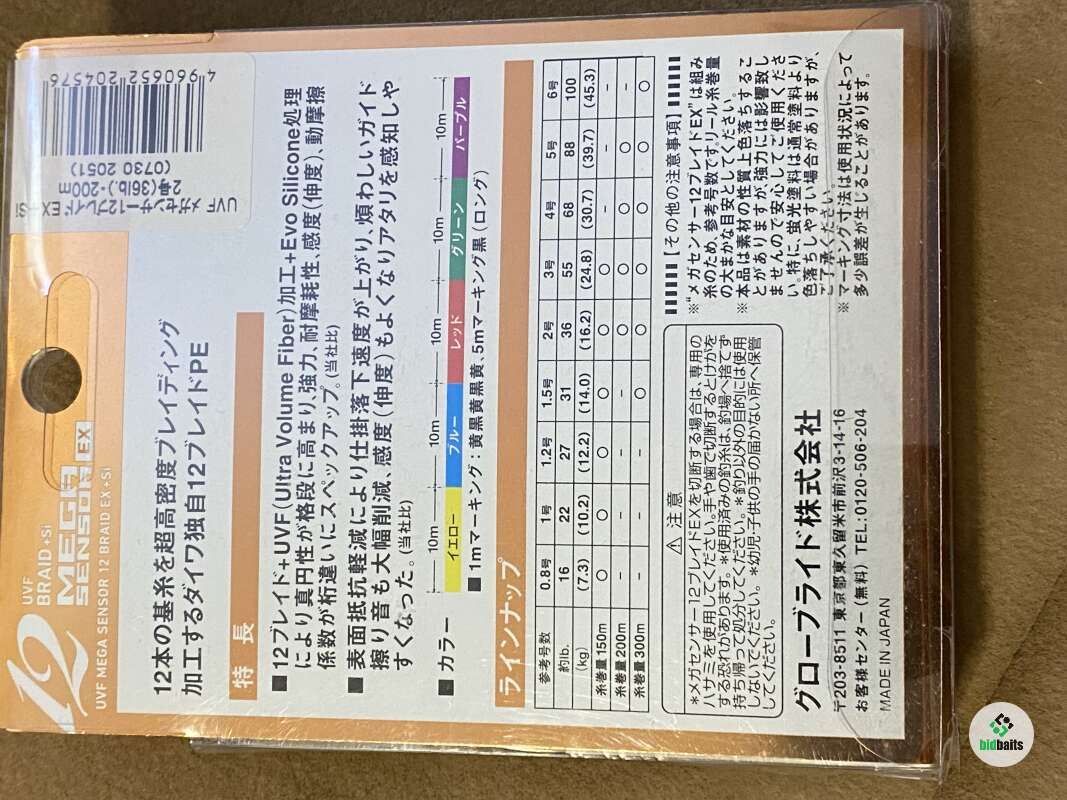 UVF
BRAID +Si
MEGA
SENSOR EX
12
UVF MEGA SENSOR 12 BRAID EX +Si
UVF メガセンサー12ブレイドEX+Si
2号(36lb.)-200m
(0730 2051)
4 960652 204576
12本の基糸を超高密度ブレイディング
加工するダイワ独自12ブレイドPE
特 長
■12ブレイド+UVF(Ultra Volume Fiber)加工+Evo Silicone処理
により真円性が格段に高まり、強力、耐摩耗性、感度(伸度)、動摩擦
係数が桁違いにスペックアップ。(当社比)
■表面抵抗軽減により仕掛落下速度が上がり、煩わしいガイド
擦り音も大幅削減、感度(伸度)もよくなりアタリを感知しや
すくなった。(当社比)
■カラー
10m 10m 10m 10m 10m
イエロー ブルー レッド グリーン パープル
■1mマーキング:黄黒黄黒黄、5mマーキング黒(ロング)
ラインナップ
参考号数 0.8号 1号 1.2号 1.5号 2号 3号 4号 5号 6号
約lb. 16 22 27 31 36 55 68 88 100
(kg) (7.3) (10.2) (12.2) (14.0) (16.2) (24.8) (30.7) (39.7) (45.3)
糸巻量150m ○ ○ ○ ○ ○ ○ - - -
糸巻量200m - - - - ○ ○ ○ ○ -
糸巻量300m - - - ○ ○ ○ ○ ○ ○
⚠ 注意
*メガセンサー12ブレイドEXを切断する場合は、専用の
ハサミを使用してください。手や歯で切断するとけがを
する恐れがあります。*使用済みの釣糸は、釣場へ捨てず
持ち帰って処分してください。*釣り以外の目的には使用
しないでください。*幼児、子供の手の届かない所へ保管
してください。
【その他の注意事項】
※"メガセンサー12ブレイドEX"は組み
糸のため、参考号数です。リール糸巻量
の大まかな目安としてください。
※本品は素材の性質上色落ちするこ
とがありますが、強力には影響致し
ませんので安心してご使用くださ
い。特に、蛍光塗料は通常塗料より
色落ちしやすい場合がありますが、
ご了承ください。
※マーキング寸法は使用状況によって
多少誤差が生じることがあります。
グローブライド株式会社
〒203-8511 東京都東久留米市前沢3-14-16
お客様センター(無料) TEL:0120-506-204
MADE IN JAPAN
bidbaits